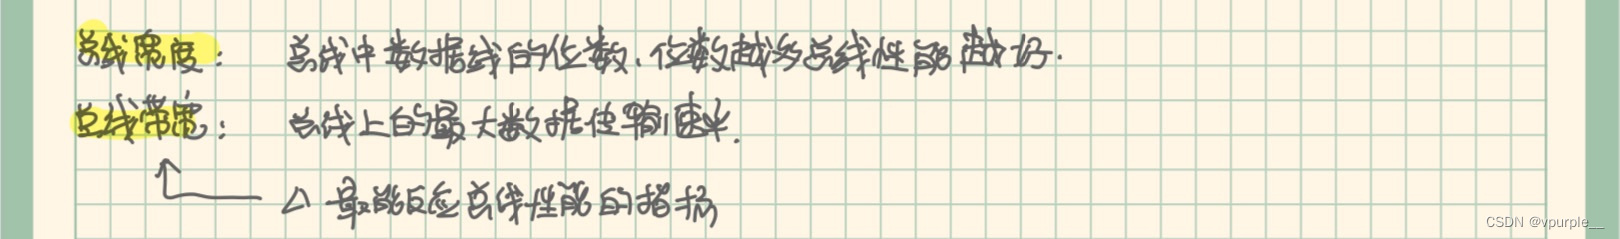 总线宽度： 总线中数据线的位数、位数越多总线性能越好.
总线带宽： 总线上的最大数据传输速率.
△ 最能反应总线性能的指标
CSDN @vpurple__